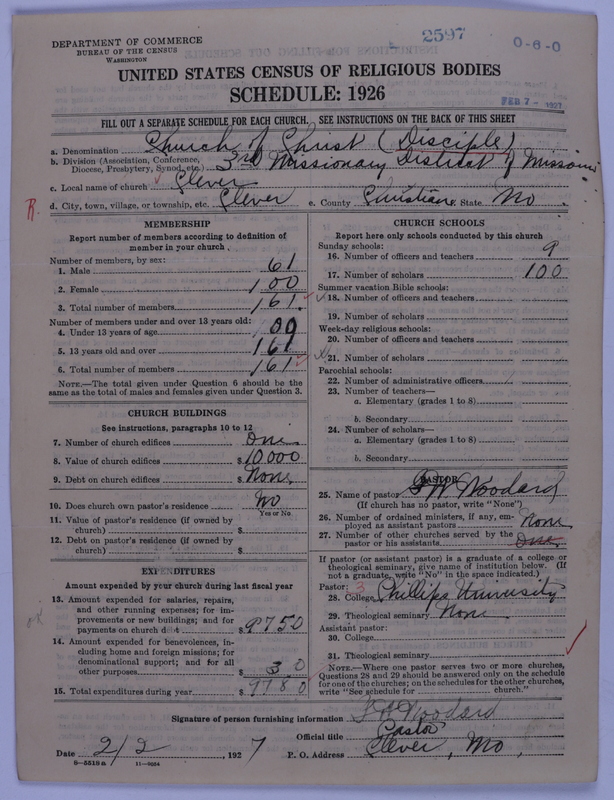 2597
0-6-0
DEPARTMENT OF COMMERCE
BUREAU OF THE CENSUS
WASHINGTON
UNITED STATES CENSUS OF RELIGIOUS BODIES
SCHEDULE: 1926
FEB 7 - 1927
FILL OUT A SEPARATE SCHEDULE FOR EACH CHURCH. SEE INSTRUCTIONS ON THE BACK OF THIS SHEET
a. Denomination Church of Christ (Disciple)
b. Division (Association, Conference, Diocese, Presbytery, Synod, etc.) 3rd Missionary District of Missouri
c. Local name of church Clever
R. d. City, town, village, or township, etc. Clever e. County Christian f. State Mo.
MEMBERSHIP
Report number of members according to definition of
member in your church.
Number of members, by sex:
1. Male 61
2. Female 100
3. Total number of members 161
Number of members under and over 13 years old:
4. Under 13 years of age 00
5. 13 years old and over 161
6. Total number of members 161
NOTE.—The total given under Question 6 should be
same as the total of males and females given under Question 3.
CHURCH BUILDINGS
See instructions, paragraphs 10 to 12
7. Number of church edifices One
8. Value of church edifices $10000
9. Debt on church edifices $None
10. Does church own pastor's residence No
Yes or No
11. Value of pastor's residence (if owned by
church) $
12. Debt on pastor's residence (if owned by
church) $
EXPENDITURES
Amount expended by your church during last fiscal year
13. Amount expended for salaries, repairs,
and other running expenses; for im-
provements or new buildings; and for
payments on church debt $9750
14. Amount expended for benevolences, in-
cluding home and foreign missions; for
denominational support; and for all
other purposes $30
15. Total expenditures during year $9780
CHURCH SCHOOLS
Report here only schools conducted by this church
Sunday schools:
16. Number of officers and teachers 9
17. Number of scholars 100
Summer vacation Bible schools:
18. Number of officers and teachers
19. Number of scholars
Week-day religious schools:
20. Number of officers and teachers
21. Number of scholars
Parochial schools:
22. Number of administrative officers
23. Number of teachers—
a. Elementary (grades 1 to 8)
b. Secondary
24. Number of scholars—
a. Elementary (grades 1 to 8)
b. Secondary
PASTOR
25. Name of pastor F W Woodard
(If church has no pastor, write "None")
26. Number of ordained ministers, if any, em-
ployed as assistant pastors None
27. Number of other churches served by the
pastor or his assistants One
If pastor (or assistant pastor) is a graduate of a college or
theological seminary, give name of institution below. (If
not a graduate, write "No" in the space indicated.)
Pastor: 3
28. College Phillips University
29. Theological seminary None
Assistant pastor:
30. College
31. Theological seminary
NOTE.—Where one pastor serves two or more churches,
Questions 28 and 29 should be answered only on the schedule
for one of the churches; on the schedules for the other churches,
write "See schedule for church."
Signature of person furnishing information F W Woodard
Official title Pastor
Date 2/2, 1927 P. O. Address Clever, Mo.
8-5519a 11-9054